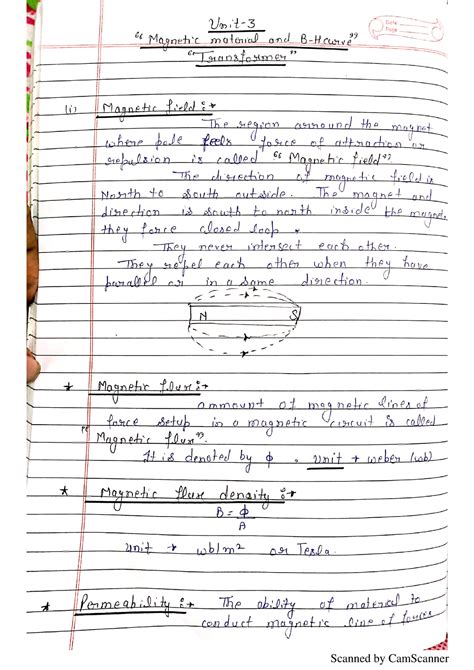 Unit-3
Date
Page
"Magnetic material and B-H curve"
"Transformer"
(i) Magnetic field :→
The region arround the magnet
where pole feels force of attraction or
repulsion is called "Magnetic field"
The direction of magnetic field is
North to south outside. The magnet and
direction is south to north inside the magnet
they force closed loop.
They never intersect each other.
They repel each other when they have
parallel or in a same direction.
N S
* Magnetic flux :→
ammount of magnetic lines of
force setup in a magnetic circuit is called
"Magnetic flux".
It is denoted by ϕ, unit → weber (wb)
* Magnetic flux density :→
B = ϕ
A
unit → wb/m² or Tesla.
* Permeability :→ The ability of material to
conduct magnetic line of forces
Scanned by CamScanner